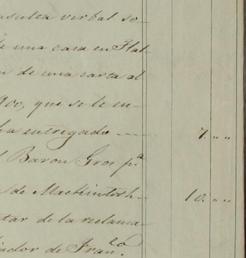 nsulta verbal so-
e una casa en Flat
n de una carta al
900, que se le en-
ha entregado ---- 7. " "
l Baron Gros pª
s de Mackintosh- 10. " "
tar de la reclama-
iador de Franco.